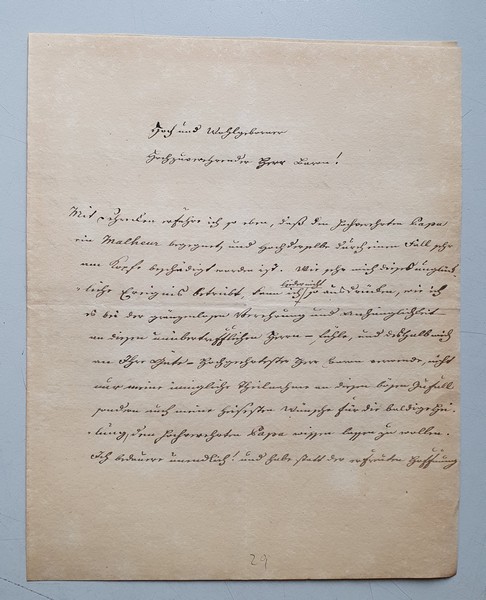 Hoch und Wohlgeborner
Hochzuverehrender Herr Baron!
Mit Schrecken erfuhr ich so eben, daß dem hochverehrten Papa
ein Malheur begegnet, und Hochderselbe durch einen Fall sehr
am Kopfe beschädigt worden ist. Wie sehr mich dieses unglück
-liche Ereignis betrübt, kann ich leider nicht so ausdrücken, wie ich
es bei der gränzenlosen Verehrung und Anhänglichkeit
an diesen unübertrefflichen Herrn – fühle, und deshalb mich
an Ihre Güte – Hochgeehrtester Herr Baron verwende, nicht
nur meine innigliche Theilnahme an diesen bösen Zufall
sondern auch meine heißesten Wünsche für die baldige Hei-
lung, dem hochverehrten Papa wissen lassen zu wollen.
Ich bedauere unendlich! und habe statt der erfreuten Hoffnung
29